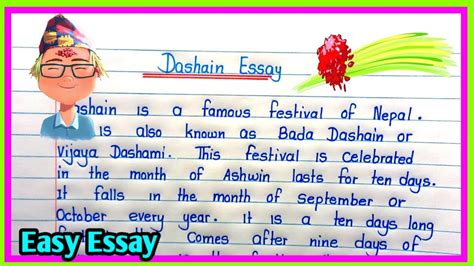 Dashain Essay
Dashain is a famous festival of Nepal.
is also known as Bada Dashain or
Vijaya Dashami. This festival is celebrated
in the month of Ashwin lasts for ten days.
It falls in the month of september or
October every year. It is a ten days long
Comes after nine days of
Easy Essay